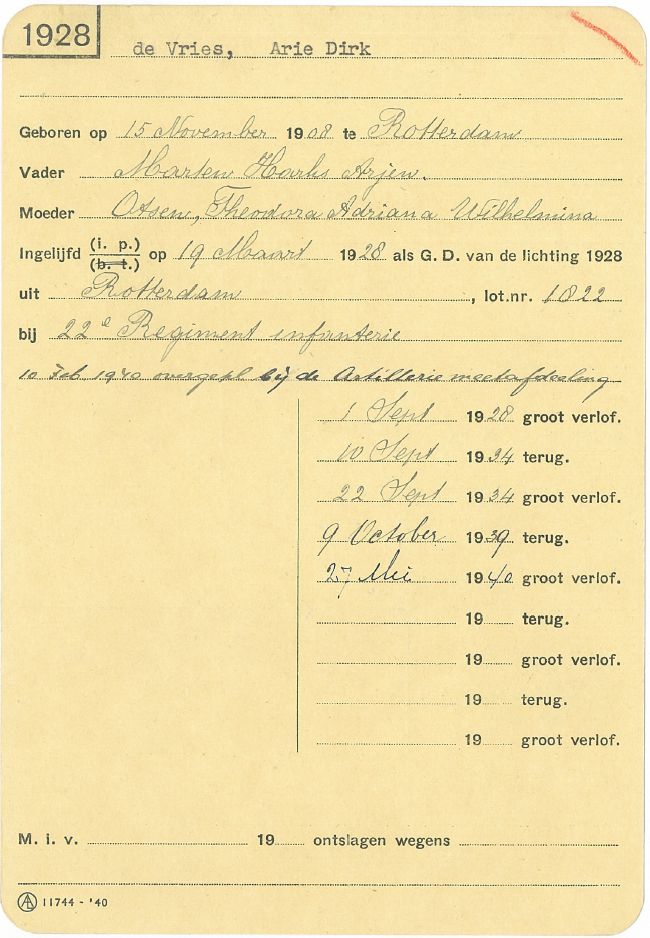 1928
de Vries, Arie Dirk
Geboren op 15 November 1908 te Rotterdam
Vader Marten Harks Arjen.
Moeder Otsen, Theodora Adriana Wilhelmina
Ingelijfd (i. p.) (b. t.) op 19 Maart 1928 als G. D. van de lichting 1928
uit Rotterdam, lot.nr. 1822
bij 22e Regiment infanterie
10 Feb 1940 overgepl bij de Artillerie meetafdeeling
1 Sept 1928 groot verlof.
10 Sept 1934 terug.
22 Sept 1934 groot verlof.
9 October 1939 terug.
27 Mei 1940 groot verlof.
19 terug.
19 groot verlof.
19 terug.
19 groot verlof.
M. i. v. 19 ontslagen wegens
11744 - '40